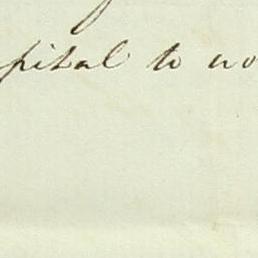 spital to no